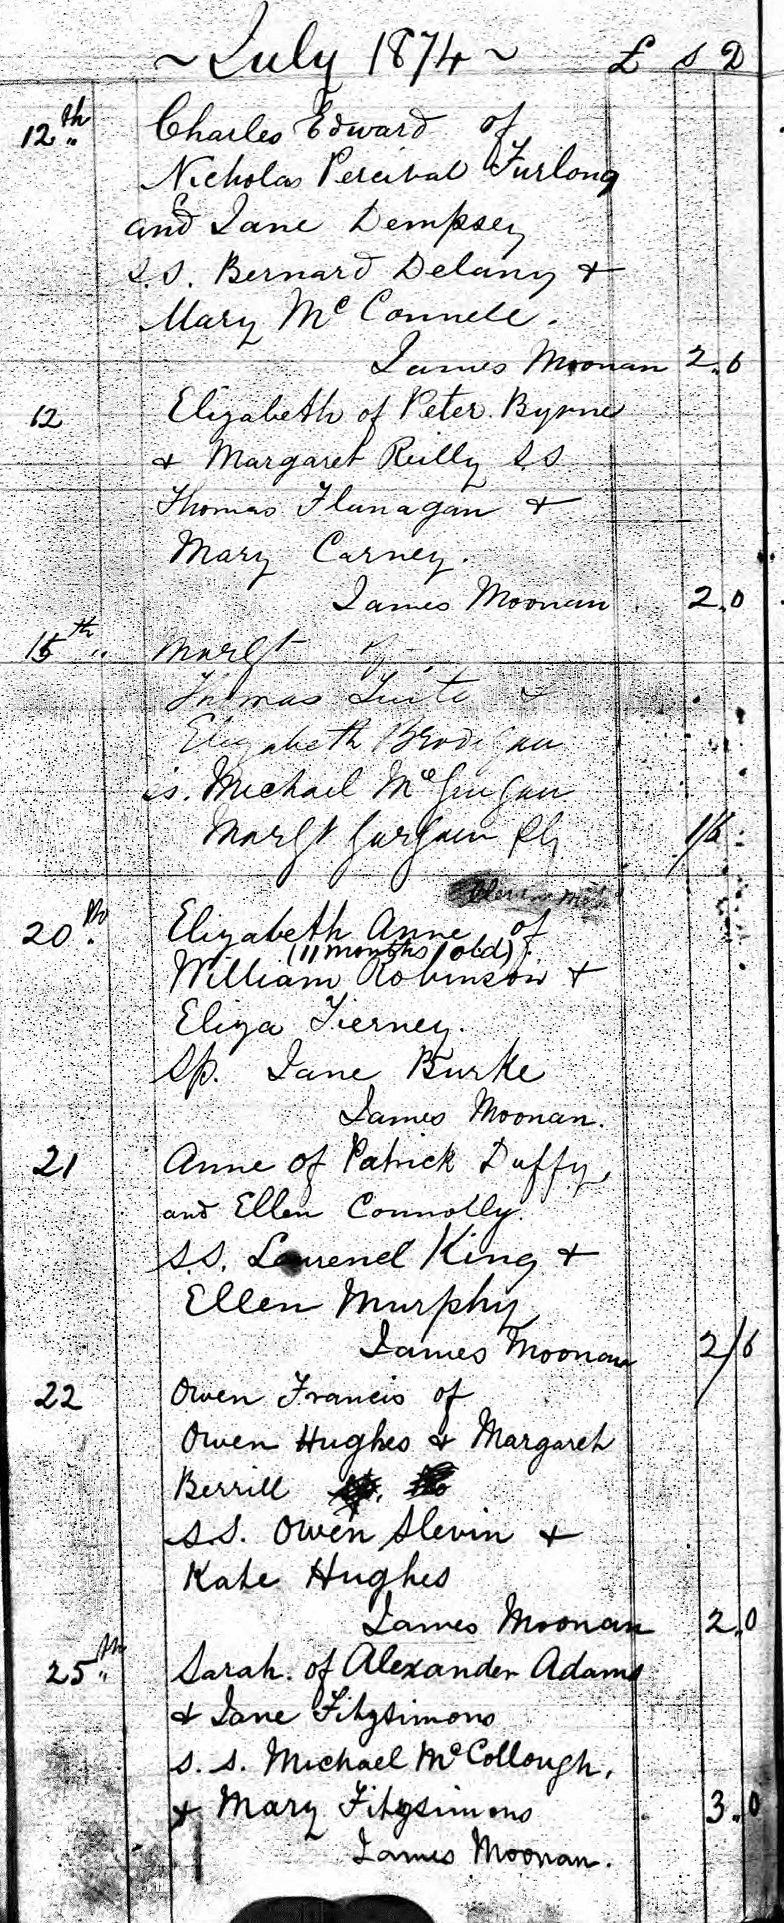 ~ July 1874 ~ £ s D
12th Charles Edward of
Nicholas Percival Furlong
and Jane Dempsey
S.S. Bernard Delany +
Mary McConnell.
James Moonan 2.6
12 Elizabeth of Peter Byrne
+ Margaret Reilly SS
Thomas Flanagan +
Mary Carney.
James Moonan 2.0
15th Margt of
Thomas Tuite +
Elizabeth Brodigan
s. Michael McGuigan
Margt 1/6
20th Elizabeth Anne of
(11 months old)
William Robinson +
Eliza Tierney.
Sp. Jane Burke
James Moonan.
21 Anne of Patrick Duffy
and Ellen Connolly.
S.S. King +
Ellen Murphy
James Moonan 2/6
22 Owen Francis of
Owen Hughes & Margaret
Berrill
S.S. Owen Slevin +
Kate Hughes
James Moonan 2.0
25th Sarah. of Alexander Adams
+ Jane Fitzsimons
S. S. Michael McCollough,
+ Mary Fitzsimons 3.0
James Moonan.